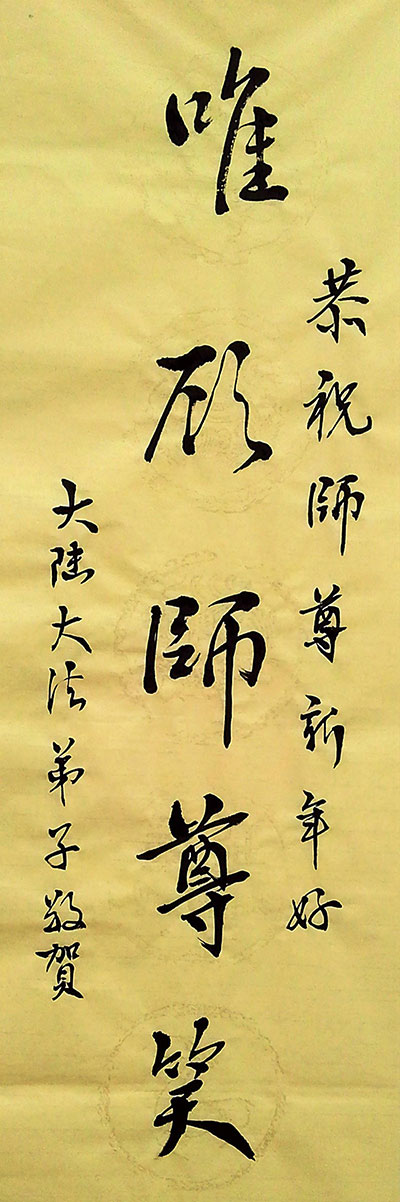 恭祝師尊新年好
唯願師尊笑
大陸大法弟子敬賀